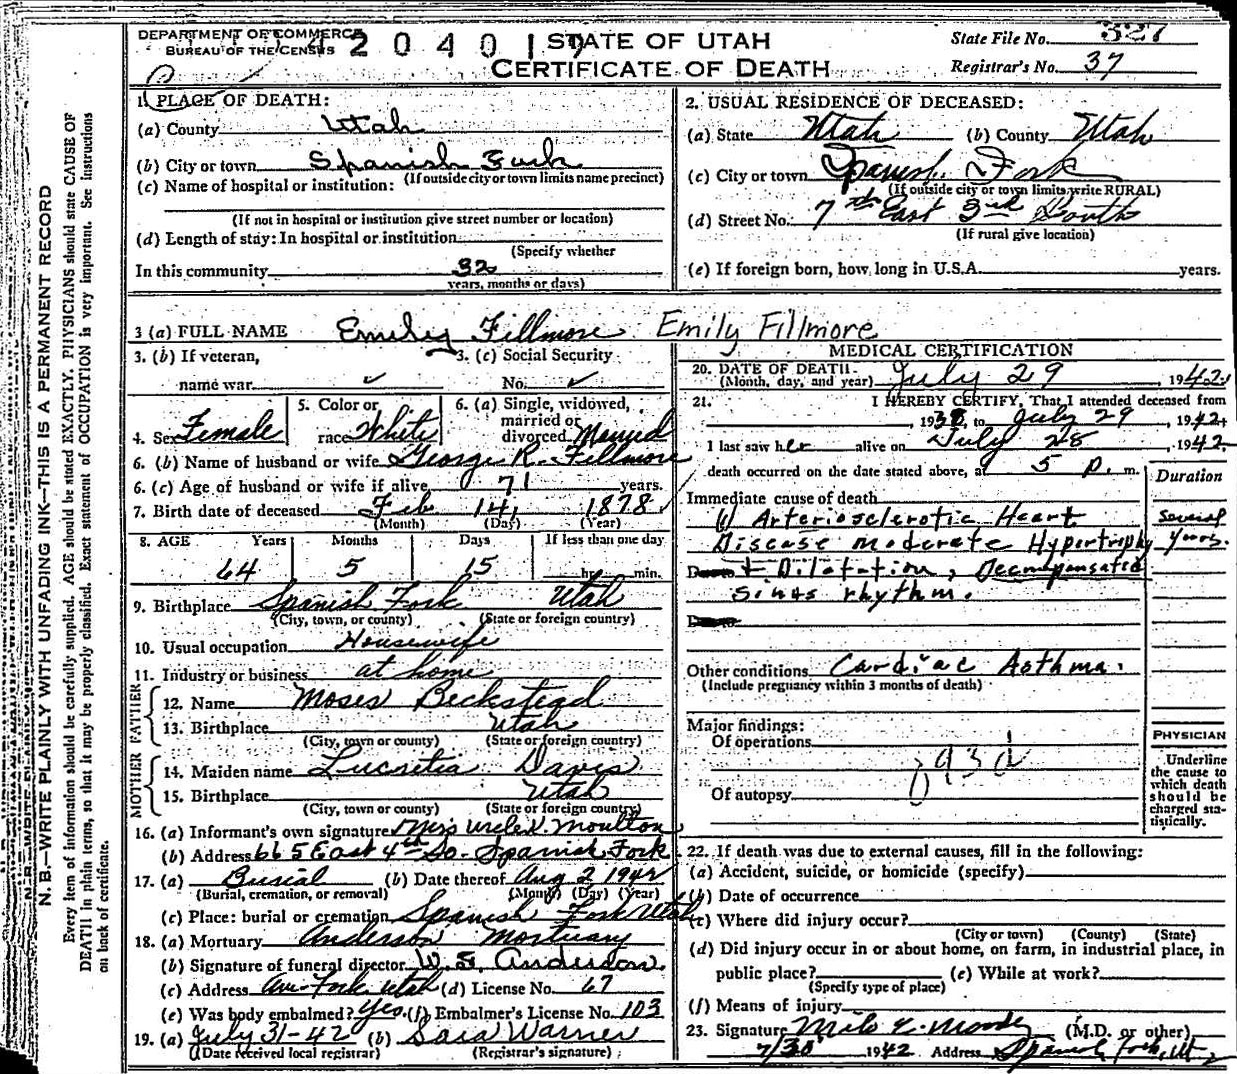 DEPARTMENT OF COMMERCE
BUREAU OF THE CENSUS
2 0 4 0 1
STATE OF UTAH
CERTIFICATE OF DEATH
State File No. 327
Registrar's No. 37
1. PLACE OF DEATH:
(a) County Utah
(b) City or town Spanish Fork
(If outside city or town limits name precinct)
(c) Name of hospital or institution:
(If not in hospital or institution give street number or location)
(d) Length of stay: In hospital or institution
(Specify whether
In this community 32
years, months or days)
2. USUAL RESIDENCE OF DECEASED:
(a) State Utah (b) County Utah
(c) City or town Spanish Fork
(If outside city or town limits write RURAL)
(d) Street No. 7th East 3rd South
(If rural give location)
(e) If foreign born, how long in U.S.A. years.
3 (a) FULL NAME Emily Fillmore Emily Fillmore
3. (b) If veteran, name war ✓
3. (c) Social Security No. ✓
4. Sex Female
5. Color or race White
6. (a) Single, widowed, married or divorced Married
6. (b) Name of husband or wife George R. Fillmore
6. (c) Age of husband or wife if alive 71 years.
7. Birth date of deceased Feb 14, 1878
(Month) (Day) (Year)
8. AGE Years Months Days If less than one day
64 5 15 hr. min.
9. Birthplace Spanish Fork Utah
(City, town, or county) (State or foreign country)
10. Usual occupation Housewife
11. Industry or business at home
FATHER
12. Name Moses Beckstead
13. Birthplace Utah
(City, town or county) (State or foreign country)
MOTHER
14. Maiden name Lucretia Davis
15. Birthplace Utah
(City, town or county) (State or foreign country)
16. (a) Informant's own signature Mrs V. Moulton
(b) Address 665 East 4th So. Spanish Fork
17. (a) Burial (b) Date thereof Aug 2 1942
(Burial, cremation, or removal) (Month) (Day) (Year)
(c) Place: burial or cremation Spanish Fork Utah
18. (a) Mortuary Anderson Mortuary
(b) Signature of funeral director W. E. Anderson
(c) Address Am. Fork Utah (d) License No. 67
(e) Was body embalmed? Yes. (f) Embalmer's License No. 103
19. (a) July 31-42 (b) Sara Warner
(Date received local registrar) (Registrar's signature)
MEDICAL CERTIFICATION
20. DATE OF DEATH
(Month, day, and year) July 29, 1942
21. I HEREBY CERTIFY, That I attended deceased from
1938, to July 29, 1942.
I last saw her alive on July 28 1942.
death occurred on the date stated above, at 5 p. m.
Duration
Immediate cause of death
(1) Arteriosclerotic Heart Several
Disease moderate Hypertrophy years.
+ Dilatation, Decompensated
sinus rhythm.
Other conditions Cardiac Asthma.
(Include pregnancy within 3 months of death)
Major findings:
Of operations
93d
Of autopsy
PHYSICIAN
Underline
the cause to
which death
should be
charged sta-
tistically.
22. If death was due to external causes, fill in the following:
(a) Accident, suicide, or homicide (specify)
(b) Date of occurrence
(c) Where did injury occur?
(City or town) (County) (State)
(d) Did injury occur in or about home, on farm, in industrial place, in
public place? (e) While at work?
(Specify type of place)
(f) Means of injury
23. Signature Milo C. Moody (M.D. or other)
7/30 1942 Address Spanish Fork, Ut
N. B.—WRITE PLAINLY WITH UNFADING INK—THIS IS A PERMANENT RECORD
Every item of information should be carefully supplied. AGE should be stated EXACTLY. PHYSICIANS should state CAUSE OF
DEATH in plain terms, so that it may be properly classified. Exact statement of OCCUPATION is very important. See instructions
on back of certificate.